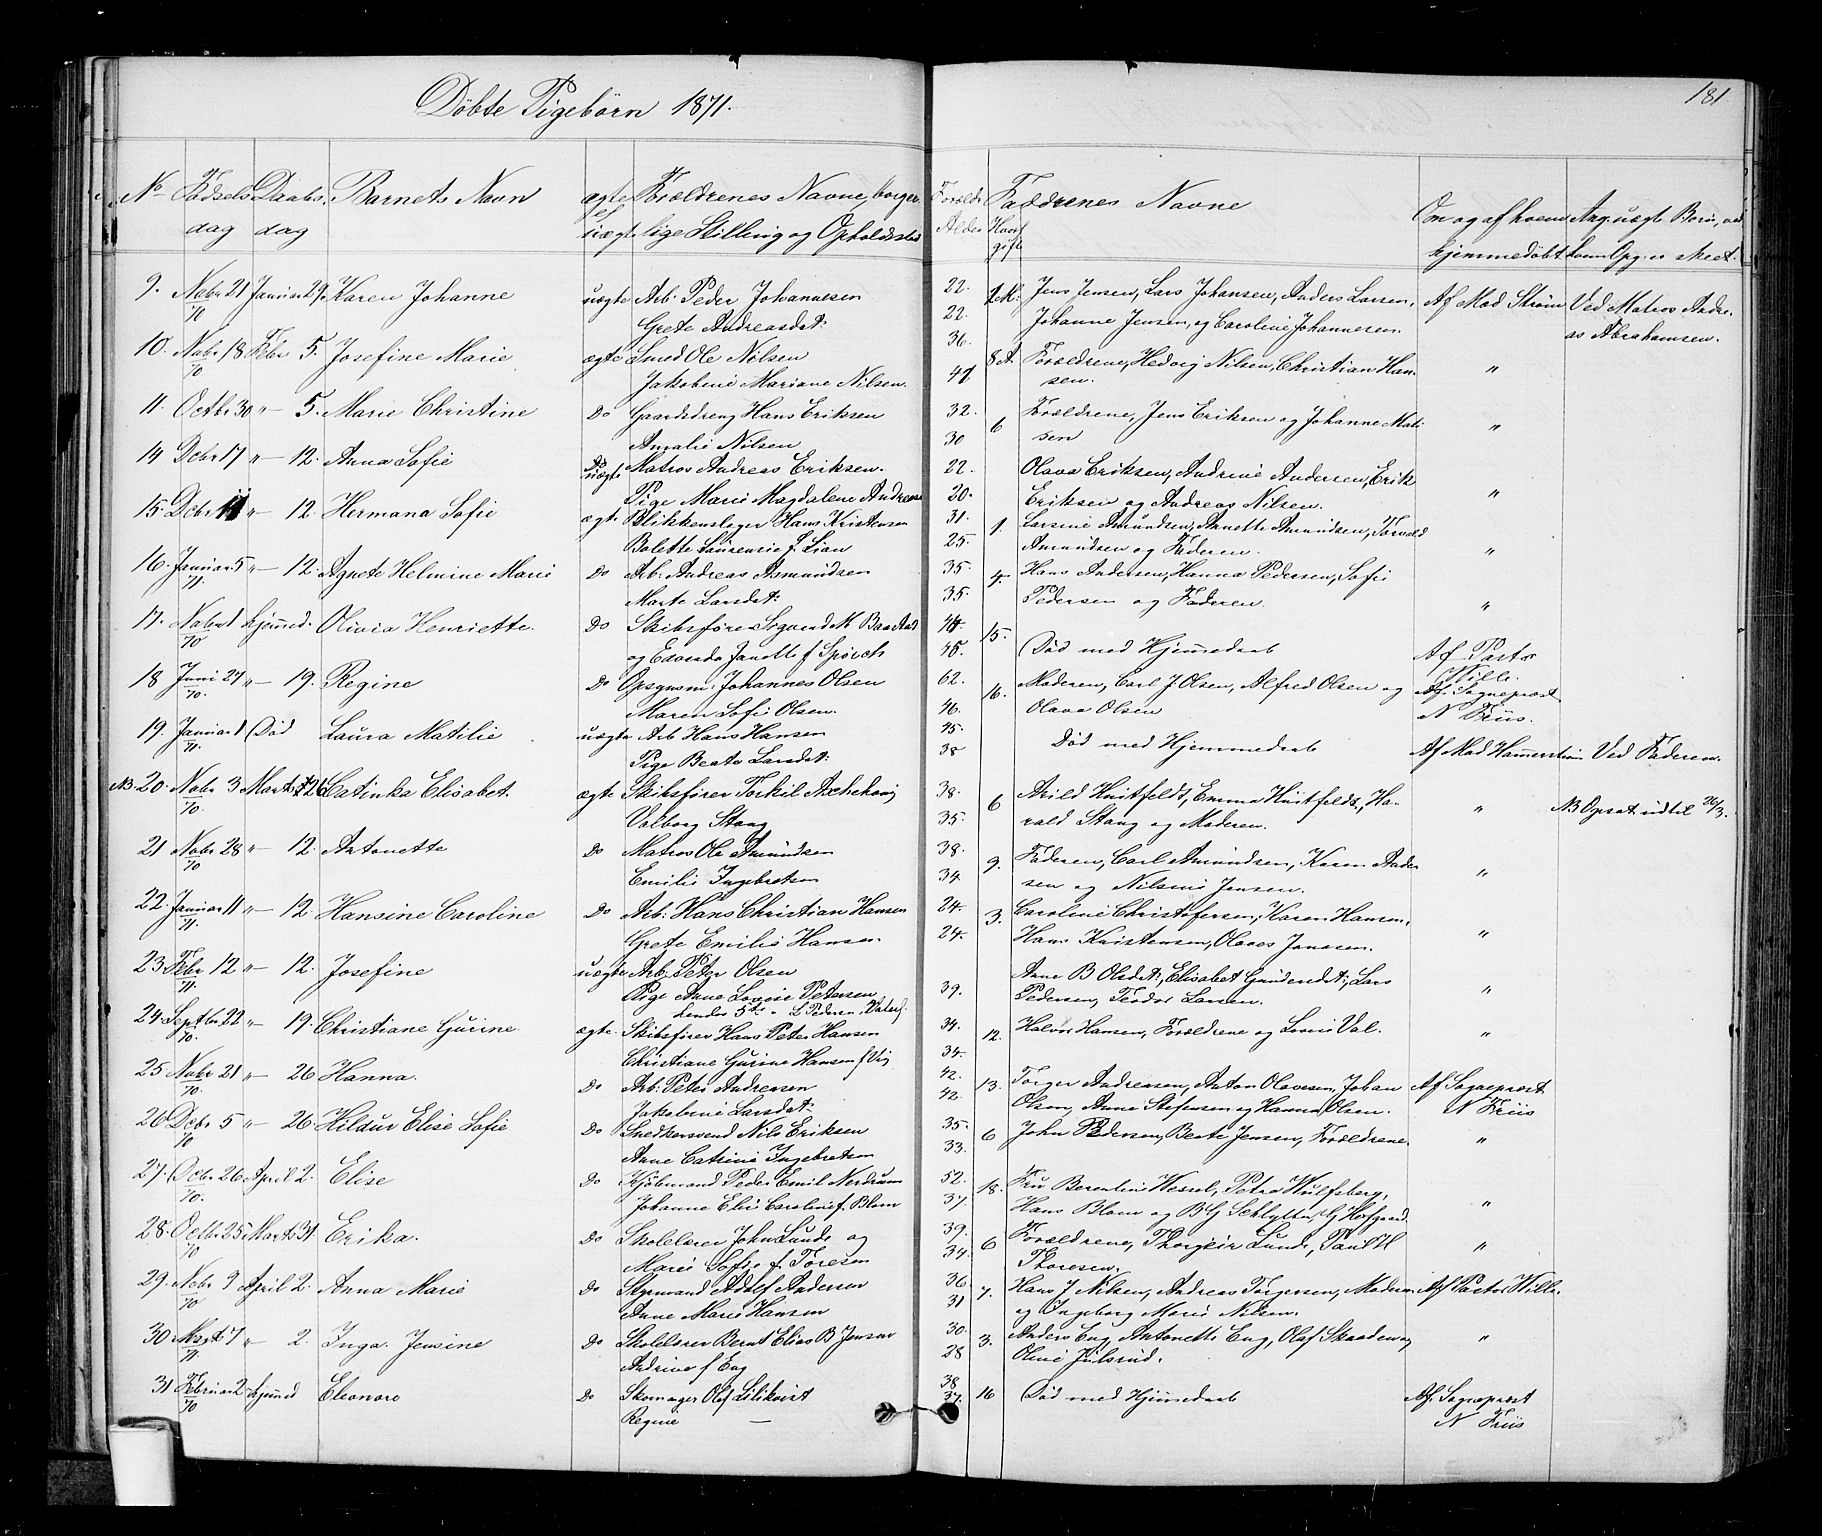 Döbte Pigebörn 1871.
181
No Födsels Daabs Barnets Navn ægte Forældrenes Navne, borger
dag dag uægte lige Stilling og Opholdssted
Forældr Alder Hvor gift Faddrenes Navne Om og af hvem Ang: uægte Börn, ved
hjemmedöbt hvem Opg: er skeet.
9. Novbr 21 Januar 29 Karen Johanne uægte Arb: Peder Johannesen 22. Jens Jensen, Lars Johansen, Anders Larsen, Af Mad Ström Ved Matros Andre-
70 Grete Andreasdat: 22. Johanne Jensen, og Caroline Johannesen. as Abrahamsen.
10. Novbr 18 Febr 5. Josefine Marie ægte Smed Ole Nilsen 36. 8 Forældrene, Hedvig Nilsen, Christian Han- "
70 Jakobine Mariane Nilsen. sen.
11. Octbr 30 " 5. Marie Christine Do Gaardsdreng Hans Eriksen 32. 6 Forældrene, Jens Eriksen og Johanne Mati- "
Amalie Nilsen 30 sen
14 Dcbr 17 " 12. Anna Sofie uægte Matros Andreas Eriksen. 22. Olava Eriksen, Andrine Andersen, Erik "
Pige Marie Magdalene 20. Eriksen og Andreas Nilsen.
15. Dcbr " 12. Hermana Sofie ægte Blikkenslager Hans Kristensen 31. 1. Larsine Amundsen, Annette Amundsen, Torvald "
Bolette Laurensie f. Lian 25. Amundsen og Faderen.
16. Januar 5 " 12. Agnete Helmine Marie Do Arb: Andreas Asmundsen 35. 4. Hans Andersen, Hanna Pedersen, Sofie "
71 Marte Larsdat: 35. Pedersen og Faderen.
17. Novbr 1 hjemmed. Olivia Henriette. Do Skibsförer 15. Död med Hjemmedaab Af Pastor
70 og Janette f Spörck 45. Wille.
18 Juni 27 " 19. Regine Do Opsynsm: Johannes Olsen 62. 16. Moderen, Carl J Olsen, Alfred Olsen og Af Sogneprest
70. Maren Sofie Olsen. 46. Olava Olsen N Friis.
19. Januar 1 Död Laura Matilie uægte Arb Hans Hansen 45. Död med Hjemmedaab Af Mad Hamerström Ved Faderen.
71. Pige Beate Larsdat: 38
NB. 20. Novbr 3 Marts 26 Catinka Elisabet. ægte Skibsförer Torkil Aschehoug 38. 6 Arild Huitfeldt, Emma Huitfeldt, Ha- " NB Opsat udtil 26/3.
70. Valborg Stang 35. rald Stang og Moderen.
21 Novbr 28 " 12. Antonette Do Matros Ole Amundsen 38. 9. Faderen, Carl Amundsen, Karen Ander "
70 Emilie Ingebretsen 34. sen og Nilsine Jensen.
22. Januar 11 " 12. Hansine Caroline Do Arb: Hans Christian Hansen 24. 3. Caroline Christofersen, Karen Hansen, "
71. Grete Emilie Hansen. 24. Hans Kristensen, Olaves Jonasen.
23. Febr 12 " 12. Josefine uægte Arb: Peter Olsen Anne B Olsdt:, Elisabet Gundersdt:, Lars "
71. Pige Anne Lovise Petersen 39. Pedersen, Teodor Larsen.
hendes 5te
24. Septbr 22 " 19. Christiane Gurine. ægte Skibsförer Hans Peter Hansen 34. 12. Halvor Hansen, Forældrene og Lovise Val. "
70. Christiane Gurine Hansen f Vig 34.
25 Novbr 21 " 26 Hanna. Do Arb: Peter Andreasen 42. 13. Torger Andreasen, Anton Olavesen, Johan Af Sogneprest
70. Jakobine Larsdat: 42. Olsen, Anne Stefensen og Hanna Olsen. N Friis
26 Dcbr 5 " 26. Hildur Elise Sofie Do Snedkersvend Nils Eriksen 35. 6 John Pedersen, Beate Jensen, Forældrene. "
70 Anne Catrine Ingebretsen 33.
27. Octbr 26 April 2. Elise Do Kjöbmand Peder Emil Nerdrum 52. 18. Fru Berentine Wessel, Petra Wulfsberg, "
70. Johanne Elise Caroline f. Blom 37. Hans Blom og B G Schlytter,
28. Octbr 25 Marts 31 Erika. Do Skolelærer John Lunde og 39. 6 Forældrene, Thorgeir Lunde, Paul H "
70 Marie Sofie f. Toresen 34. Thoresen.
29. Novbr 9 April 2. Anna Marie Do Styrmand Adolf Andersen 36. 7. Hans J Nilsen, Andreas Torgersen, Moderen Af Pastor Wille.
70. Anne Marie Hansen 31 og Ingeborg Marie Nilsen.
30 7 " 2. Inga Jensine Do Skolelærer Bernt Elias B Jensen 30. 3. Anders Eng, Antonette Eng, Olaf Skaaden og "
71. Andrine f Eng 28 Oline Julsrud.
31 Februar 2 hjemmed Eleonore Do Skomager Olof Lilikvist 38 16 Död med Hjemmedaab Af. Sogneprest
70 Regine — 37. N Friis